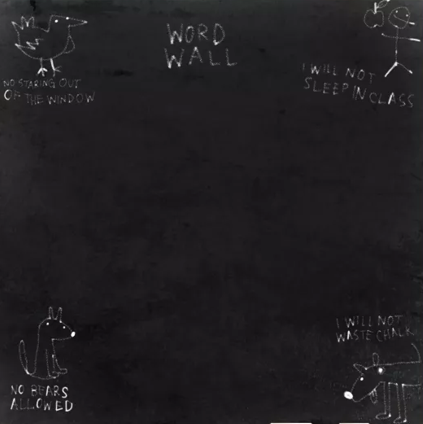 WORD
WALL
NO STARING OUT
OF THE WINDOW
I WILL NOT
SLEEP IN CLASS
NO BEARS
ALLOWED
I WILL NOT
WASTE CHALK